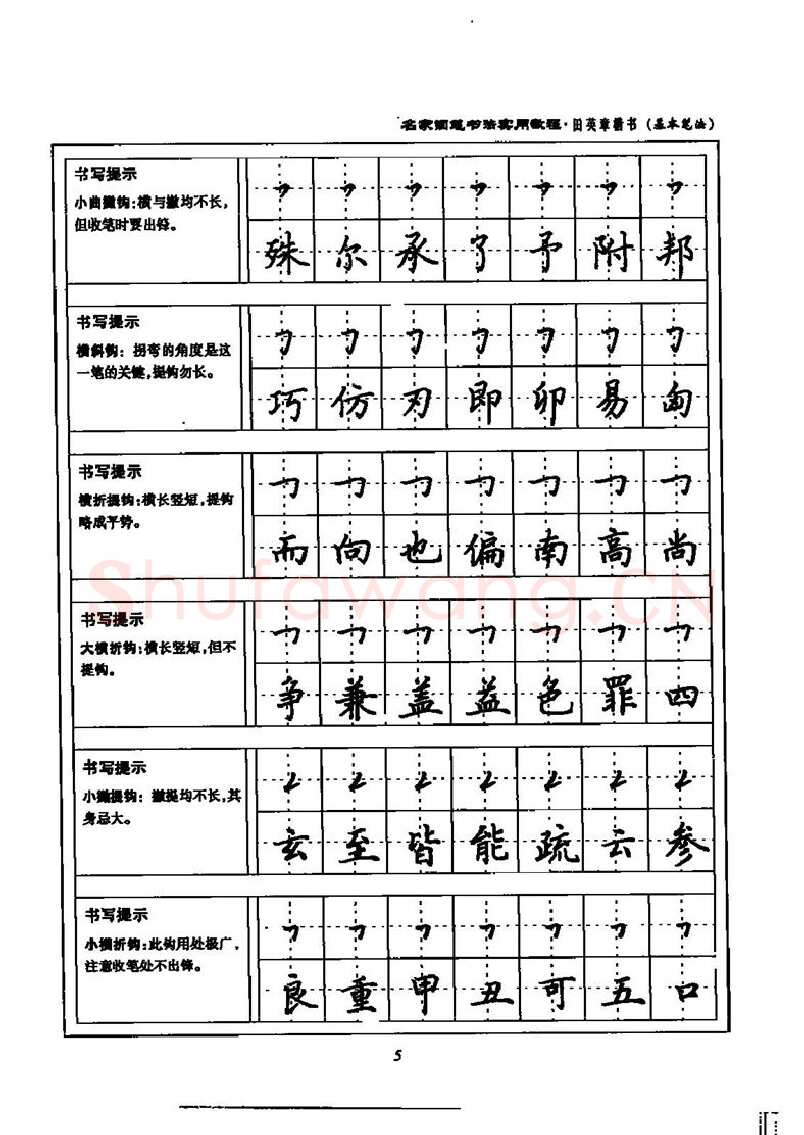 名家钢笔书法实用教程·田英章楷书(基本笔法)
书写提示
小曲撇钩:横与撇均不长,
但收笔时要出锋。
殊 尔 承 了 予 附 邦
书写提示
横斜钩:拐弯的角度是这
一笔的关键,提钩勿长。
巧 仿 刃 即 卯 易 匈
书写提示
横折提钩:横长竖短,提钩
略成平势。
而 向 也 偏 南 高 尚
书写提示
大横折钩:横长竖短,但不
提钩。
争 兼 盖 益 色 罪 四
书写提示
小撇提钩:撇提均不长,其
身忌大。
玄 至 皆 能 疏 云 参
书写提示
小横折钩:此钩用处极广,
注意收笔处不出锋。
良 重 甲 丑 可 五 口
Shufawang.CN
5